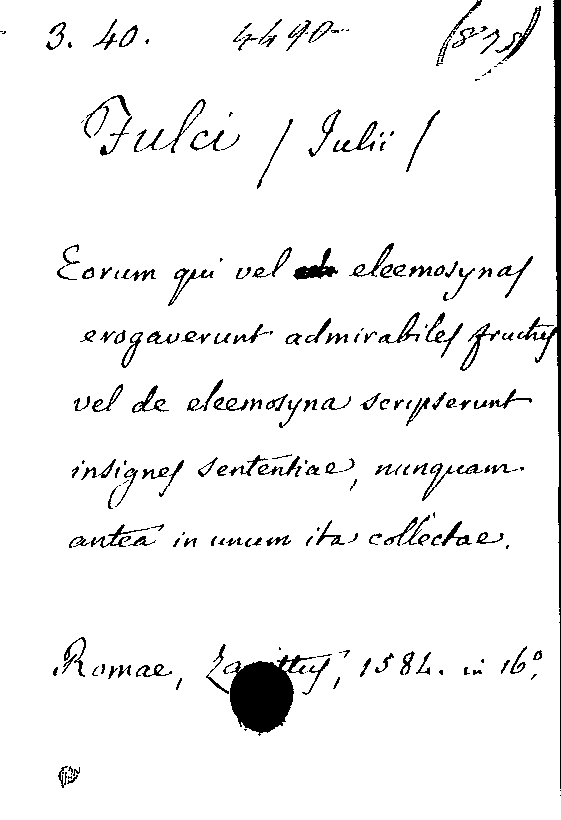 3. 40. 4490 (875)
Fulci / Iulii /
Eorum qui vel eleemosynas
erogaverunt admirabiles fructus
vel de eleemosyna scripserunt
insignes sententiae, nunquam
antea in unum ita collectae.
Romae, 1584. in 16º.